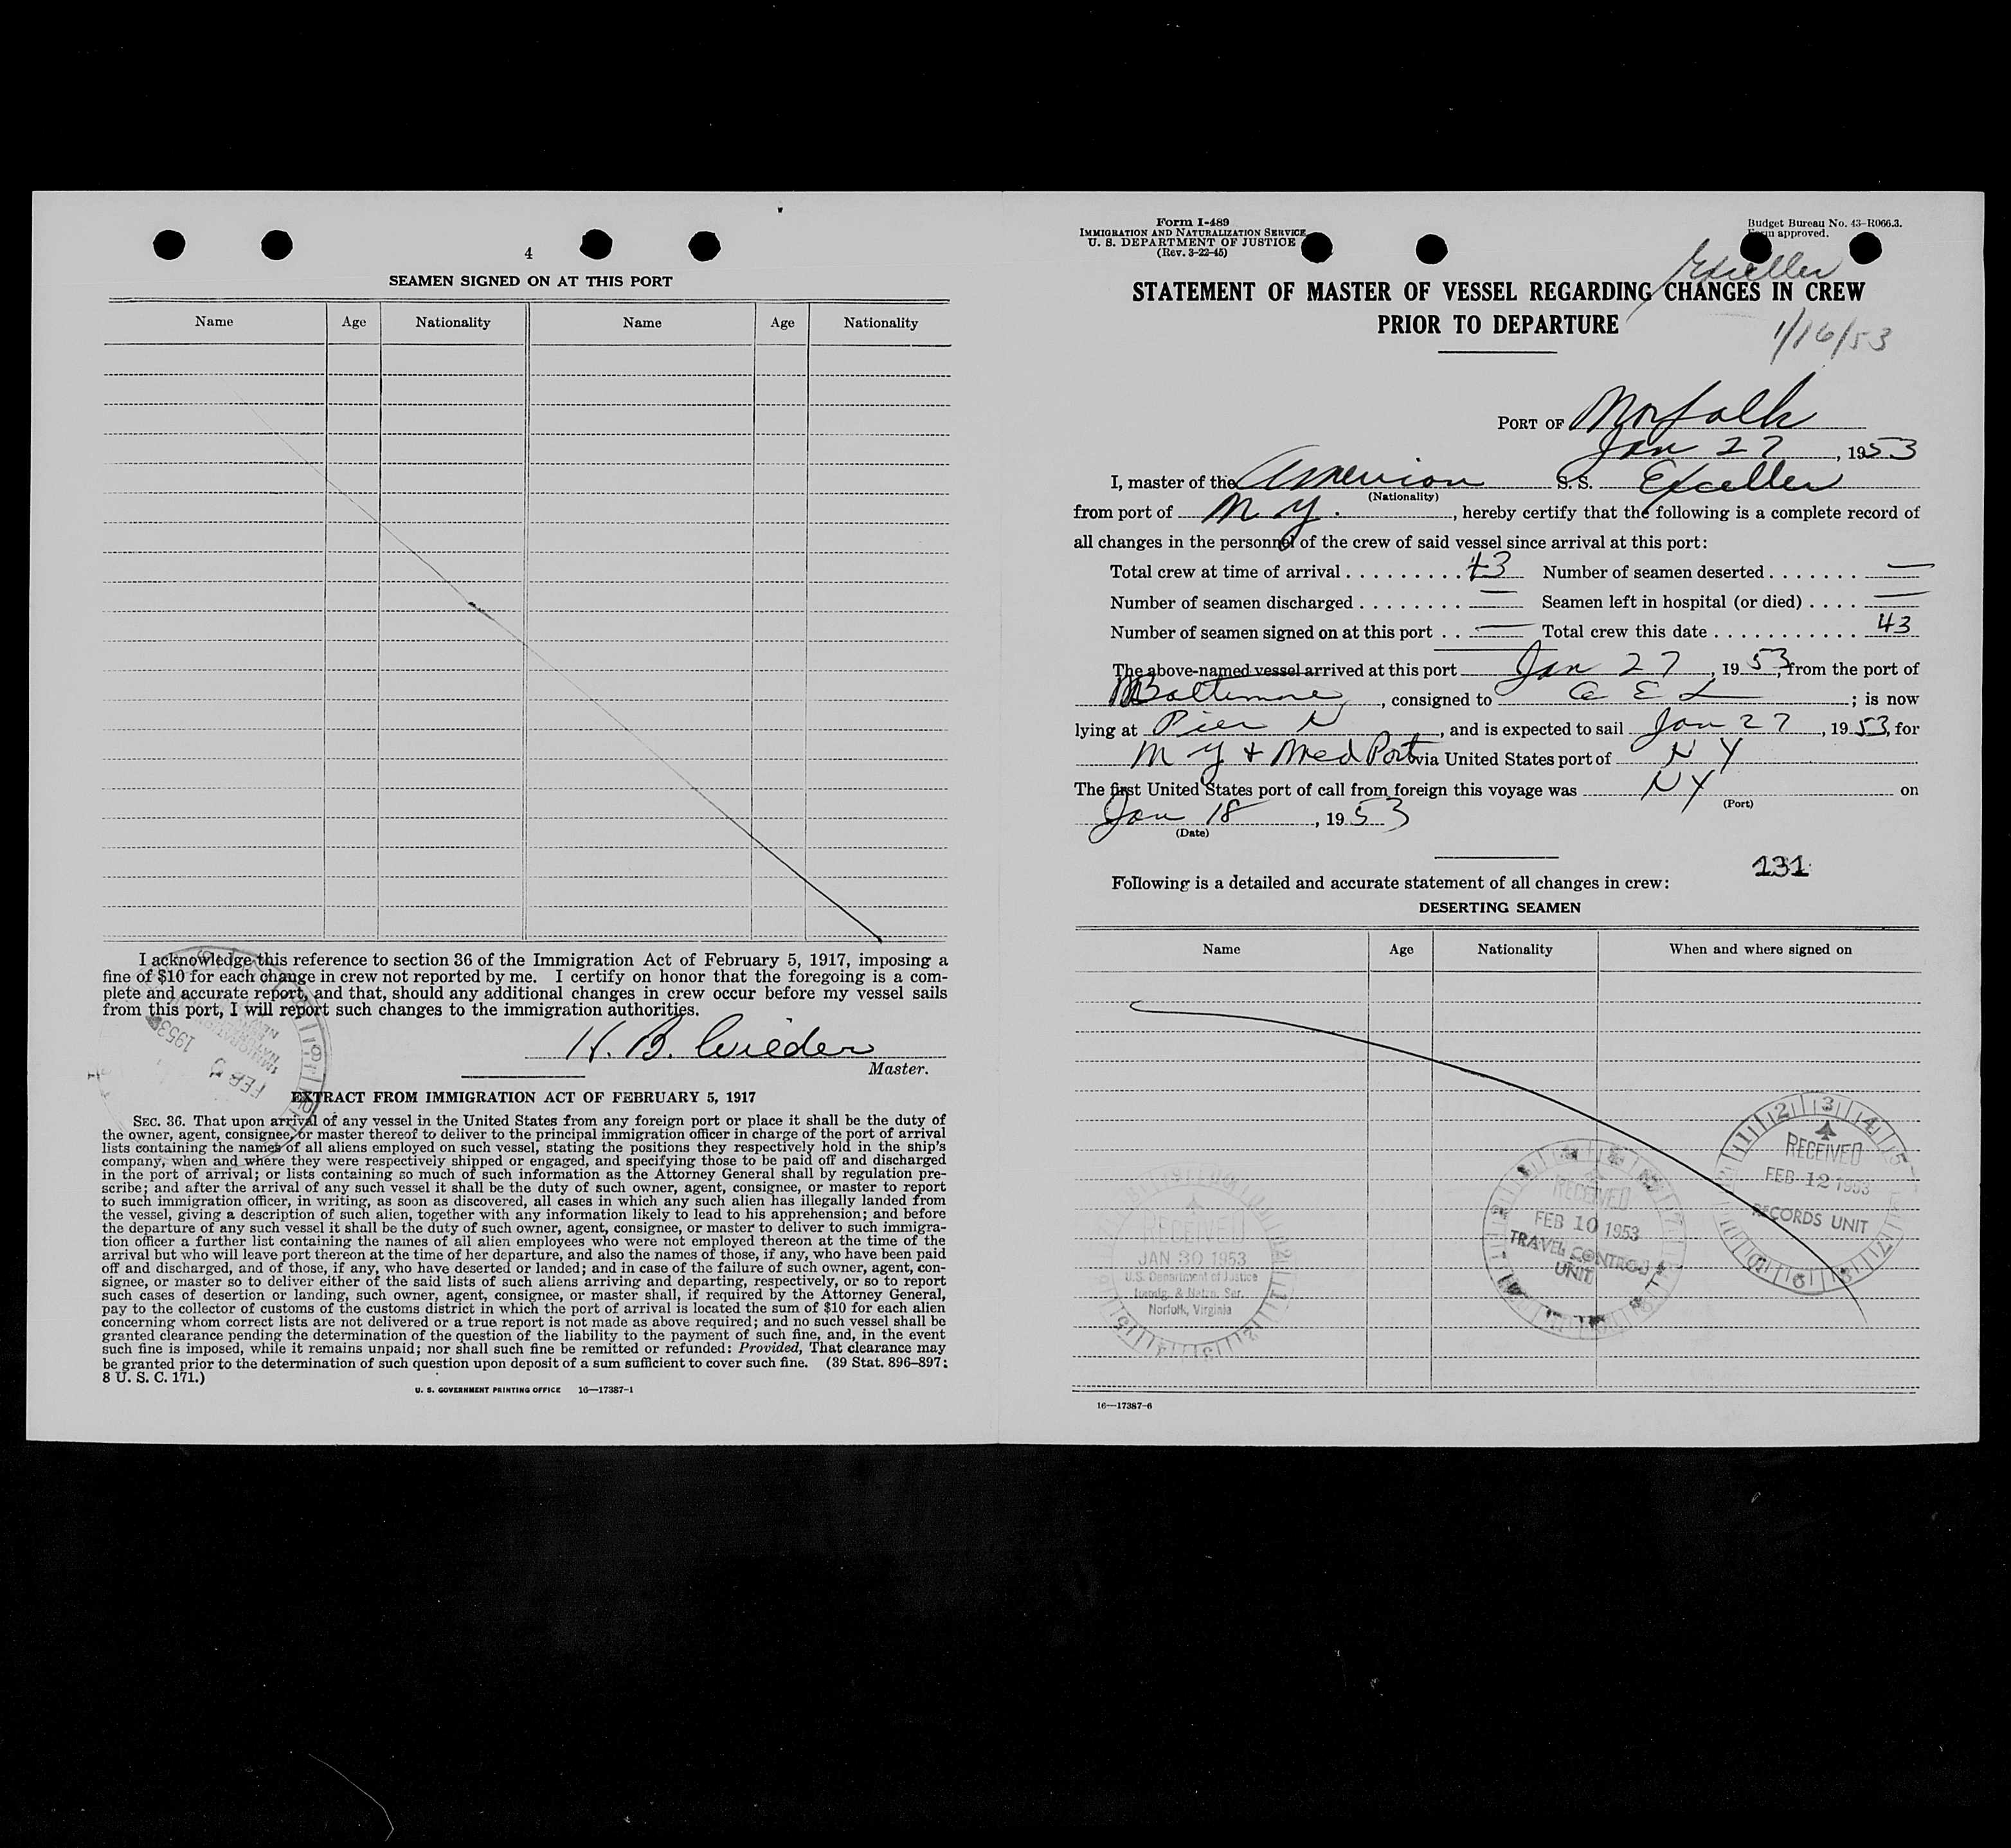 4
SEAMEN SIGNED ON AT THIS PORT
Name Age Nationality Name Age Nationality
I acknowledge this reference to section 36 of the Immigration Act of February 5, 1917, imposing a
fine of $10 for each change in crew not reported by me. I certify on honor that the foregoing is a com-
plete and accurate report, and that, should any additional changes in crew occur before my vessel sails
from this port, I will report such changes to the immigration authorities.
FEB 1953
H. B. Wieder
Master.
EXTRACT FROM IMMIGRATION ACT OF FEBRUARY 5, 1917
SEC. 36. That upon arrival of any vessel in the United States from any foreign port or place it shall be the duty of
the owner, agent, consignee, or master thereof to deliver to the principal immigration officer in charge of the port of arrival
lists containing the names of all aliens employed on such vessel, stating the positions they respectively hold in the ship's
company, when and where they were respectively shipped or engaged, and specifying those to be paid off and discharged
in the port of arrival; or lists containing so much of such information as the Attorney General shall by regulation pre-
scribe; and after the arrival of any such vessel it shall be the duty of such owner, agent, consignee, or master to report
to such immigration officer, in writing, as soon as discovered, all cases in which any such alien has illegally landed from
the vessel, giving a description of such alien, together with any information likely to lead to his apprehension; and before
the departure of any such vessel it shall be the duty of such owner, agent, consignee, or master to deliver to such immigra-
tion officer a further list containing the names of all alien employees who were not employed thereon at the time of the
arrival but who will leave port thereon at the time of her departure, and also the names of those, if any, who have been paid
off and discharged, and of those, if any, who have deserted or landed; and in case of the failure of such owner, agent, con-
signee, or master so to deliver either of the said lists of such aliens arriving and departing, respectively, or so to report
such cases of desertion or landing, such owner, agent, consignee, or master shall, if required by the Attorney General,
pay to the collector of customs of the customs district in which the port of arrival is located the sum of $10 for each alien
concerning whom correct lists are not delivered or a true report is not made as above required; and no such vessel shall be
granted clearance pending the determination of the question of the liability to the payment of such fine, and, in the event
such fine is imposed, while it remains unpaid; nor shall such fine be remitted or refunded: Provided, That clearance may
be granted prior to the determination of such question upon deposit of a sum sufficient to cover such fine. (39 Stat. 896-897;
8 U. S. C. 171.)
U. S. GOVERNMENT PRINTING OFFICE 16—17387-1
Form I-489
IMMIGRATION AND NATURALIZATION SERVICE
U. S. DEPARTMENT OF JUSTICE
(Rev. 3-22-45)
Budget Bureau No. 43-R066.3.
Form approved.
Exceller
STATEMENT OF MASTER OF VESSEL REGARDING CHANGES IN CREW
PRIOR TO DEPARTURE
1/16/53
PORT OF Norfolk
Jan 27, 1953
I, master of the American S. S. Exceller
(Nationality)
from port of N Y., hereby certify that the following is a complete record of
all changes in the personnel of the crew of said vessel since arrival at this port:
Total crew at time of arrival . . . . . . . . . 43 Number of seamen deserted . . . . . . . —
Number of seamen discharged . . . . . . . . — Seamen left in hospital (or died) . . . . —
Number of seamen signed on at this port . . — Total crew this date . . . . . . . . . . . 43
The above-named vessel arrived at this port Jan 27, 1953, from the port of
Baltimore, consigned to A E L; is now
lying at Pier N, and is expected to sail Jan 27, 1953, for
N Y + Med Port via United States port of N Y
The first United States port of call from foreign this voyage was N Y on
(Port)
Jan 18, 1953
(Date)
131
Following is a detailed and accurate statement of all changes in crew:
DESERTING SEAMEN
Name Age Nationality When and where signed on
RECEIVED
FEB 12 1953
RECORDS UNIT
RECEIVED
FEB 10 1953
TRAVEL CONTROL
UNIT
RECEIVED
JAN 30 1953
U.S. Department of Justice
Immig. & Natzn. Ser.
Norfolk, Virginia
16—17387-6